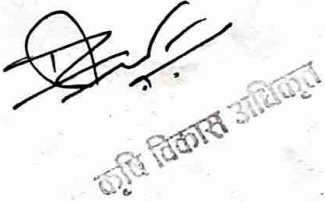 कृषि विकास अधिकृत